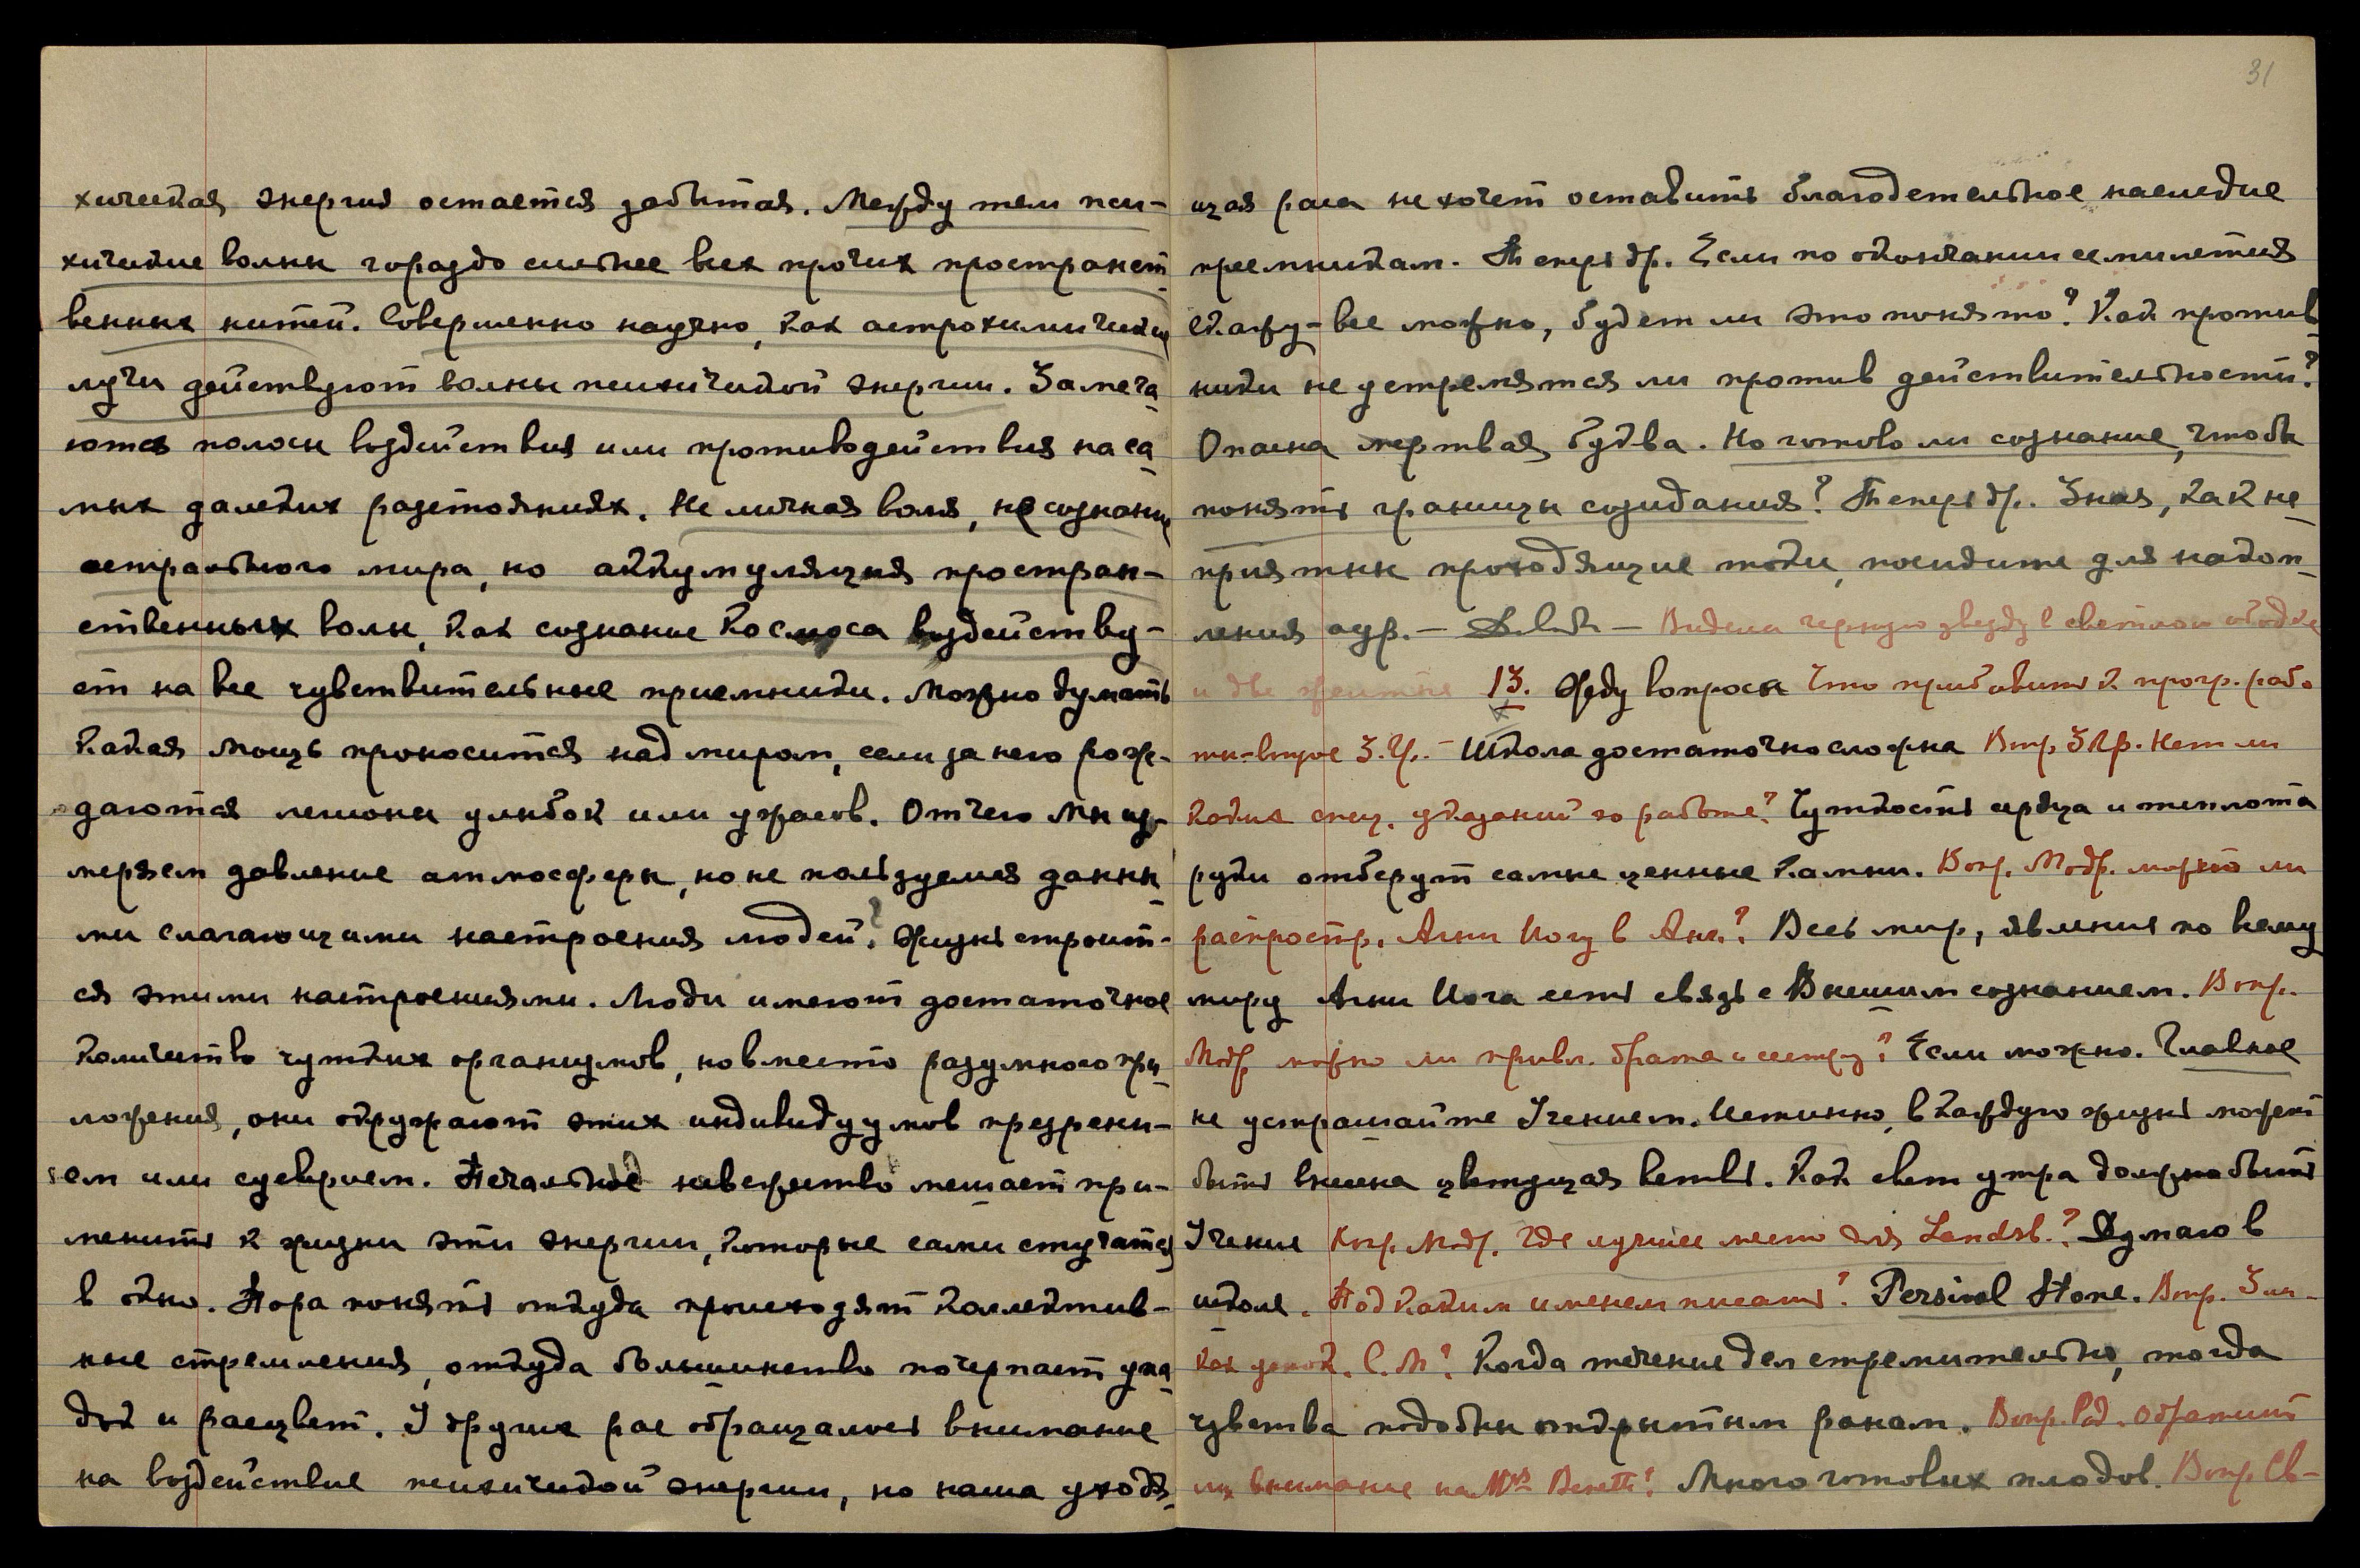 хическая энергия остается забытая. Между тем пси-
хические волны гораздо сильнее всех прочих пространст
венных нитей. Совершенно научно, как астрохимические
лучи действуют волны психической энергии. Замеча
ются полосы воздействия или противодействия на са
мых далеких разстояниях. Не личная воля, не сознание
астрального мира, но аккумуляция простран-
ственных волн, как сознание Космоса воздейству-
ет на все чувствительные приемники. Можно думать
какая мощь проносится над миром, если за него рож-
даются легионы улыбок или ужасов. Отчего мы из-
меряем давление атмосферы, но не пользуемся данны
ми слагающими настроения людей? Жизнь строит-
ся этими настроениями. Люди имеют достаточное
количество чутких организмов, но вместо разумного при
ложения, они окружают этих индивидуумов презрени-
ем или суеверием. Печальное невежество мешает при-
менить к жизни эти энергии, которые сами стучатся
в окно. Пора понять откуда происходят коллектив-
ные стремления, откуда большинство почерпает упа
док и расцвет. У других рас обращалось внимание
на воздействие психической энергии, но наша уходя
31
щая раса не хочет оставить благодетельное наследие
преемникам. Теперь др. Если по окончании семилетия
скажу-все можно, будет ли это понято? Как против
ники не устремятся ли против действительности?
Опасна мертвая буква. Но готово ли сознание, чтобы
понять границы созидания? Теперь др. Зная, как не
приятны проходящие токи, посидите для накоп
ления аур. – – Видела черную звезду в светлом ободке
и две желтые 13. Жду вопросы Что прибавить к прогр. рабо
ты- З.Ч.- Школа достаточно сложна Вопр. Нет ли
каких спец. указаний по работе? Чуткость сердца и теплота
руки отберут самые ценные камни. Вопр. Модр. можно ли
распростр. Агни Йогу в Анг.? Весь мир, явления по всему
миру Агни Йога есть связь с Высшим сознанием. Вопр.
Модр можно ли привл. брата и сестру? Если можно. Главное
не устрашайте Учением. Истинно, в каждую жизнь может
быть внесена цветущая ветвь. Как свет утра должно быть
Учение Вопр. Модр. Где лучшее место для Landsb.? Думаю в
школе. Под каким именем писать? Persival Stone. Вопр.
Как успок. С.М? Когда течение дел стремительно, тогда
чувства подобны открытым ранам. Вопр. Обратит
ли внимание на Mrs Benett? Много готовых плодов. Вопр Св-